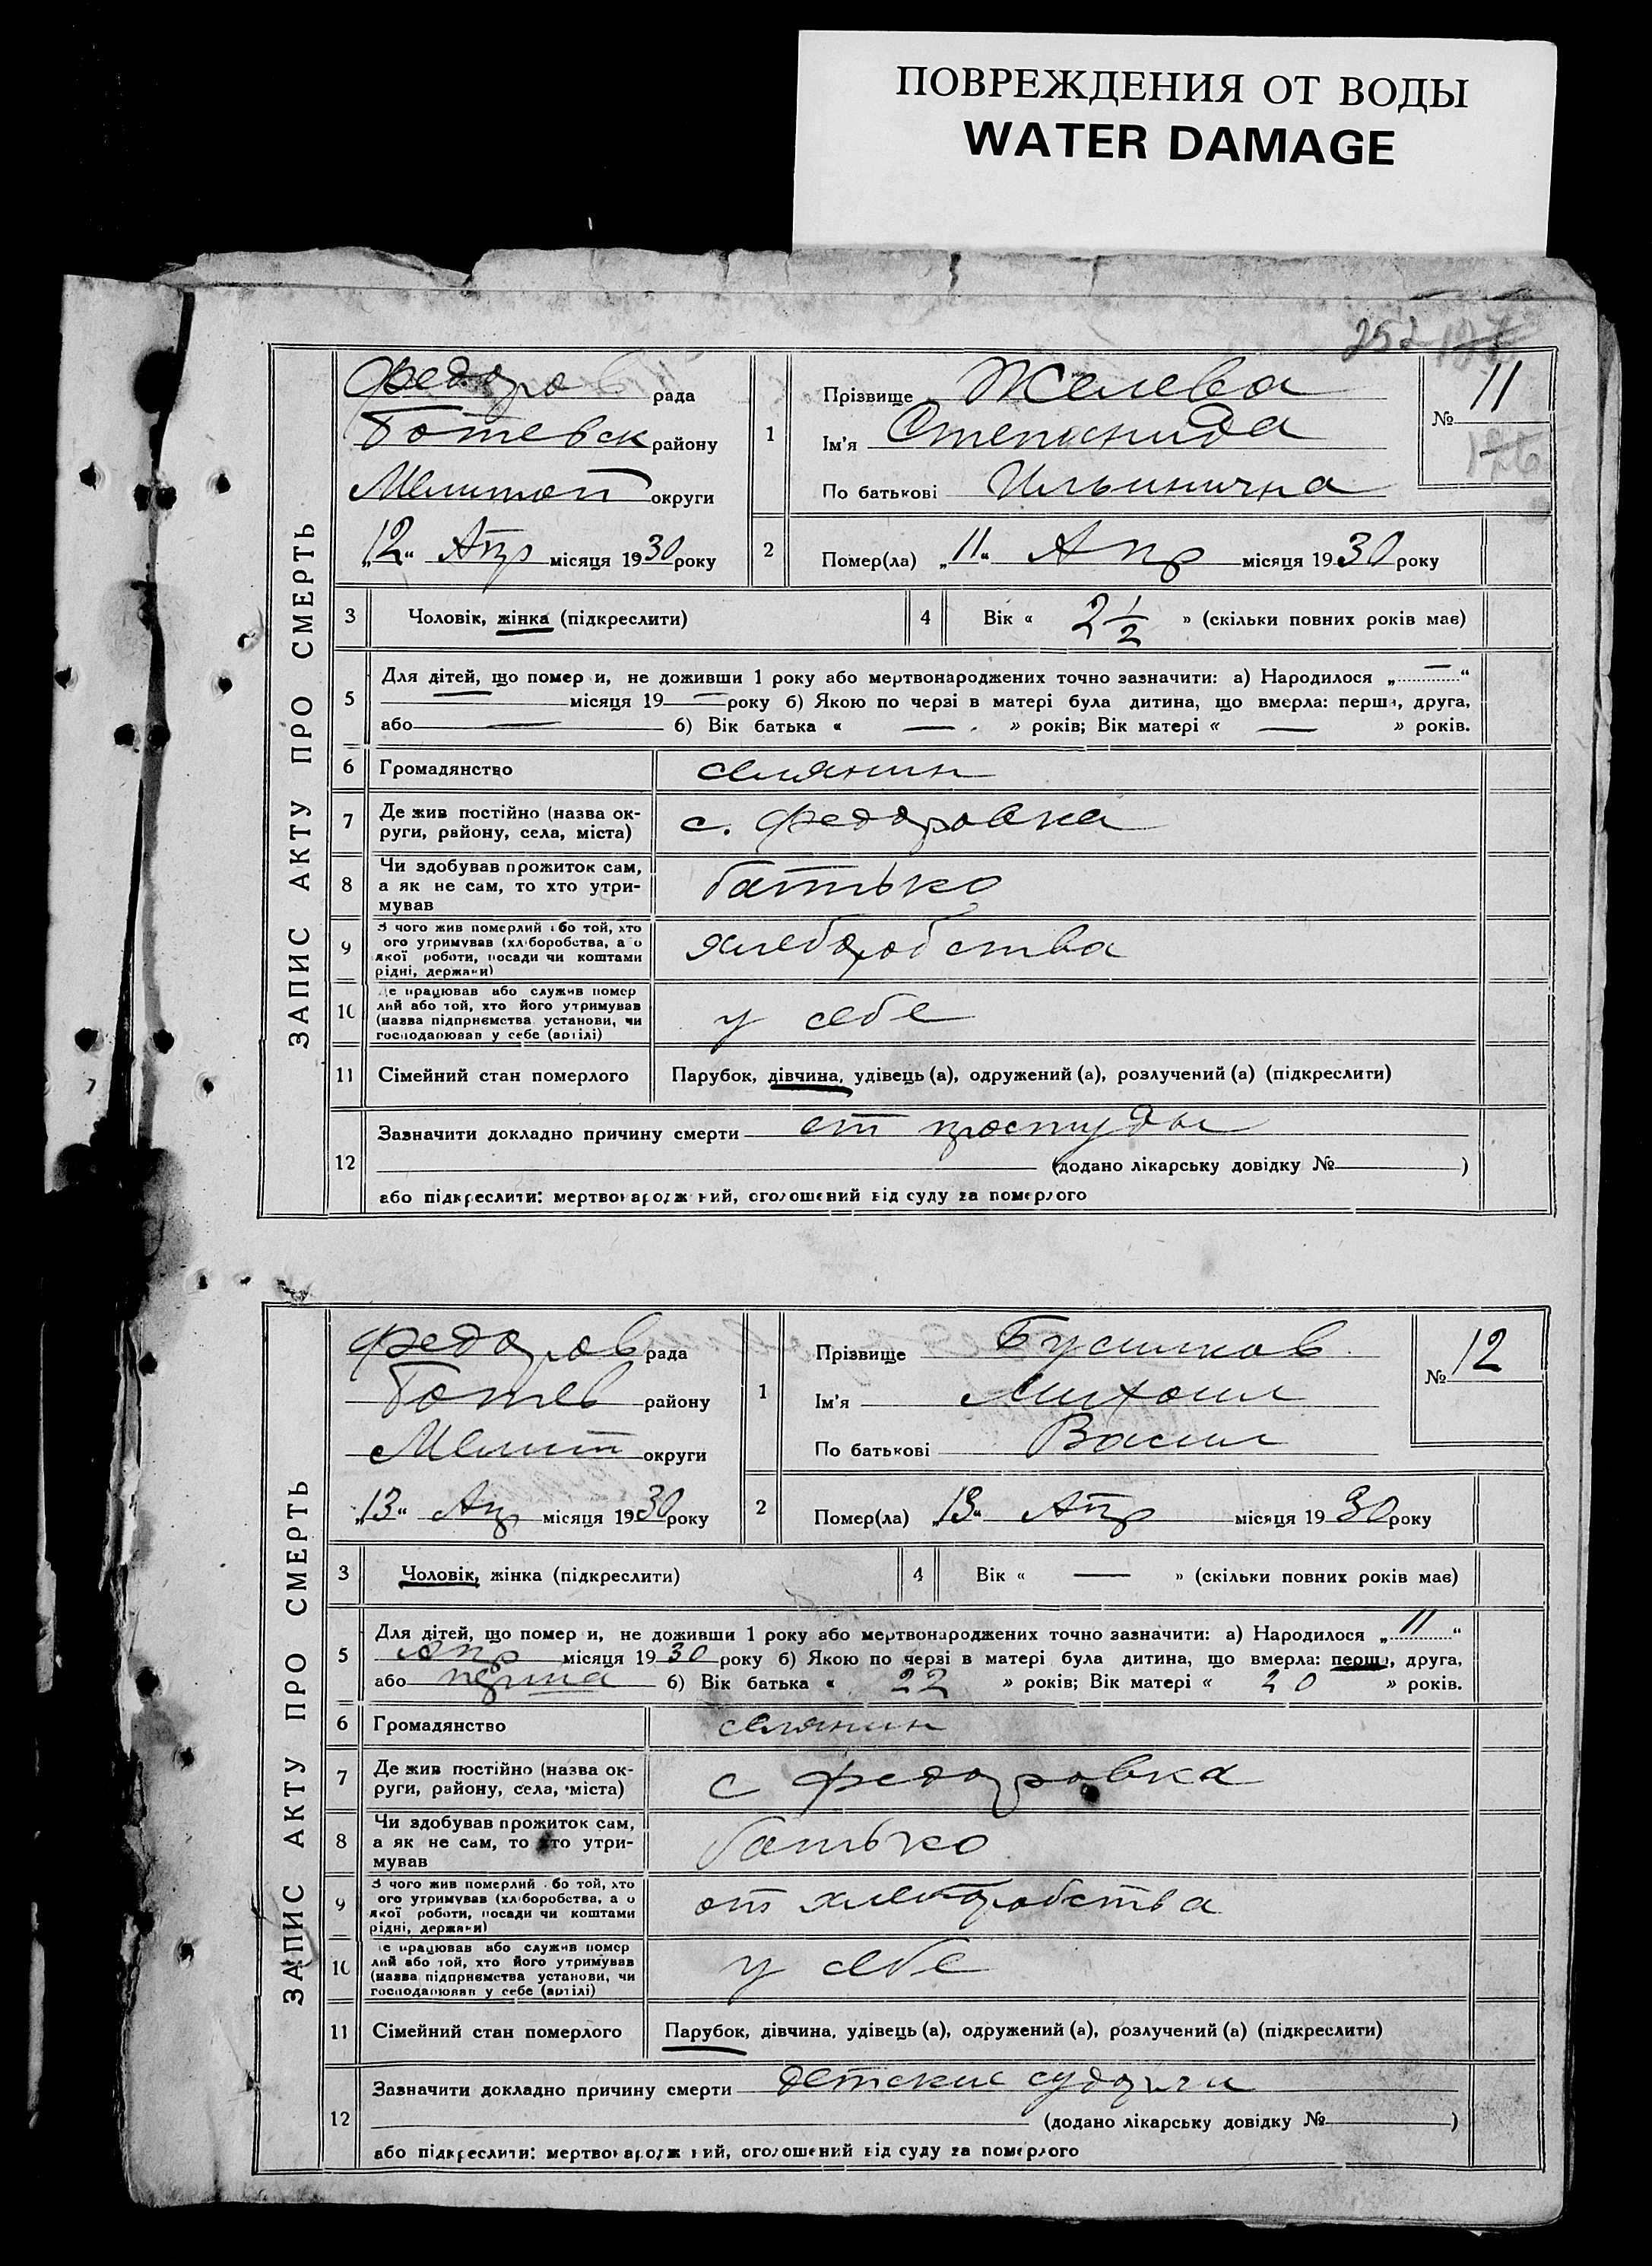 ПОВРЕЖДЕНИЯ ОТ ВОДЫ
WATER DAMAGE
252
ЗАПИС АКТУ ПРО СМЕРТЬ
Федоров рада
Ботевск району
Мелитоп округи
„12“ Апр місяця 1930 року
1
Прізвище Желева
Ім'я Степанида
По батькові Ильинична
№ 11
126
2
Помер(ла) „11“ Апр місяця 1930 року
3 Чоловік, жінка (підкреслити)
4 Вік « 2 1/2 » (скільки повних років має)
5
Для дітей, що помер и, не доживши 1 року або мертвонароджених точно зазначити: а) Народилося „—“
місяця 19— року б) Якою по черзі в матері була дитина, що вмерла: перша, друга,
або — б) Вік батька « — » років; Вік матері « — » років.
6 Громадянство селянин
7 Де жив постійно (назва ок-
руги, району, села, міста) с. Федоровка
8 Чи здобував прожиток сам,
а як не сам, то хто утри-
мував батько
9 З чого жив померлий або той, хто
ого утримував (хліборобства, а о
якої роботи, посади чи коштами
рідні, держави) хлеборобства
10 Де працював або служив помер
лий або той, хто його утримував
(назва підприємства установи, чи
господарював у себе (артілі) у себе
11 Сімейний стан померлого Парубок, дівчина, удівець (а), одружений (а), розлучений (а) (підкреслити)
12
Зазначити докладно причину смерти от простуды
(додано лікарську довідку № )
або підкреслити: мертвонароджений, оголошений від суду за померлого
ЗАПИС АКТУ ПРО СМЕРТЬ
Федоров рада
Ботев району
Мелит округи
„13“ Апр місяця 1930 року
1
Прізвище
Ім'я Михаил
По батькові Васил
№ 12
2
Помер(ла) „13“ Апр місяця 1930 року
3 Чоловік, жінка (підкреслити)
4 Вік « — » (скільки повних років має)
5
Для дітей, що помер и, не доживши 1 року або мертвонароджених точно зазначити: а) Народилося „11“
Апр місяця 1930 року б) Якою по черзі в матері була дитина, що вмерла: перша, друга,
або перша б) Вік батька « 22 » років; Вік матері « 20 » років.
6 Громадянство селянин
7 Де жив постійно (назва ок-
руги, району, села, міста) с Федоровка
8 Чи здобував прожиток сам,
а як не сам, то хто утри-
мував батько
9 З чого жив померлий або той, хто
ого утримував (хліборобства, а о
якої роботи, посади чи коштами
рідні, держави) от хлеборобства
10 е працював або служив помер
лий або той, хто його утримував
(назва підприємства установи, чи
господарював у себе (артілі) у себе
11 Сімейний стан померлого Парубок, дівчина, удівець (а), одружений (а), розлучений (а) (підкреслити)
12
Зазначити докладно причину смерти детские судороги
(додано лікарську довідку № )
або підкреслити: мертвонароджений, оголошений від суду за померлого